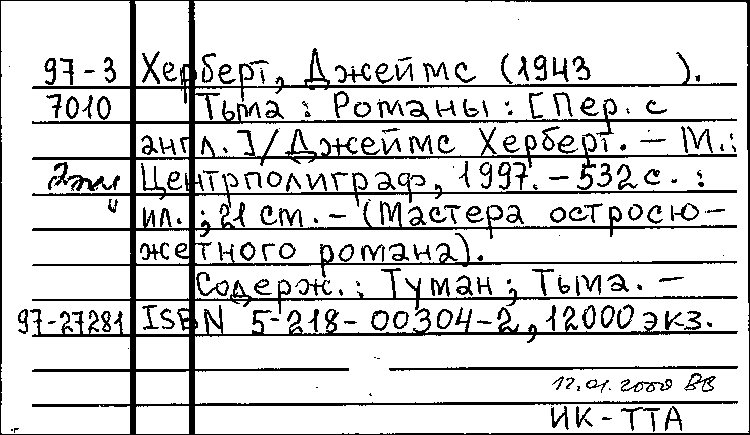 97-3 Херберт, Джеймс (1943 ).
7010 Тьма : Романы : [Пер. с
англ.] / Джеймс Херберт. – М.:
2 эк Центрполиграф, 1997. – 532 с. :
ил. ; 21 см. – (Мастера остросю-
жетного романа).
Содерж.: Туман ; Тьма. –
97-27281 ISBN 5-218-00304-2, 12000 экз.
12.01.2000 ВВ
ИК-ТТА